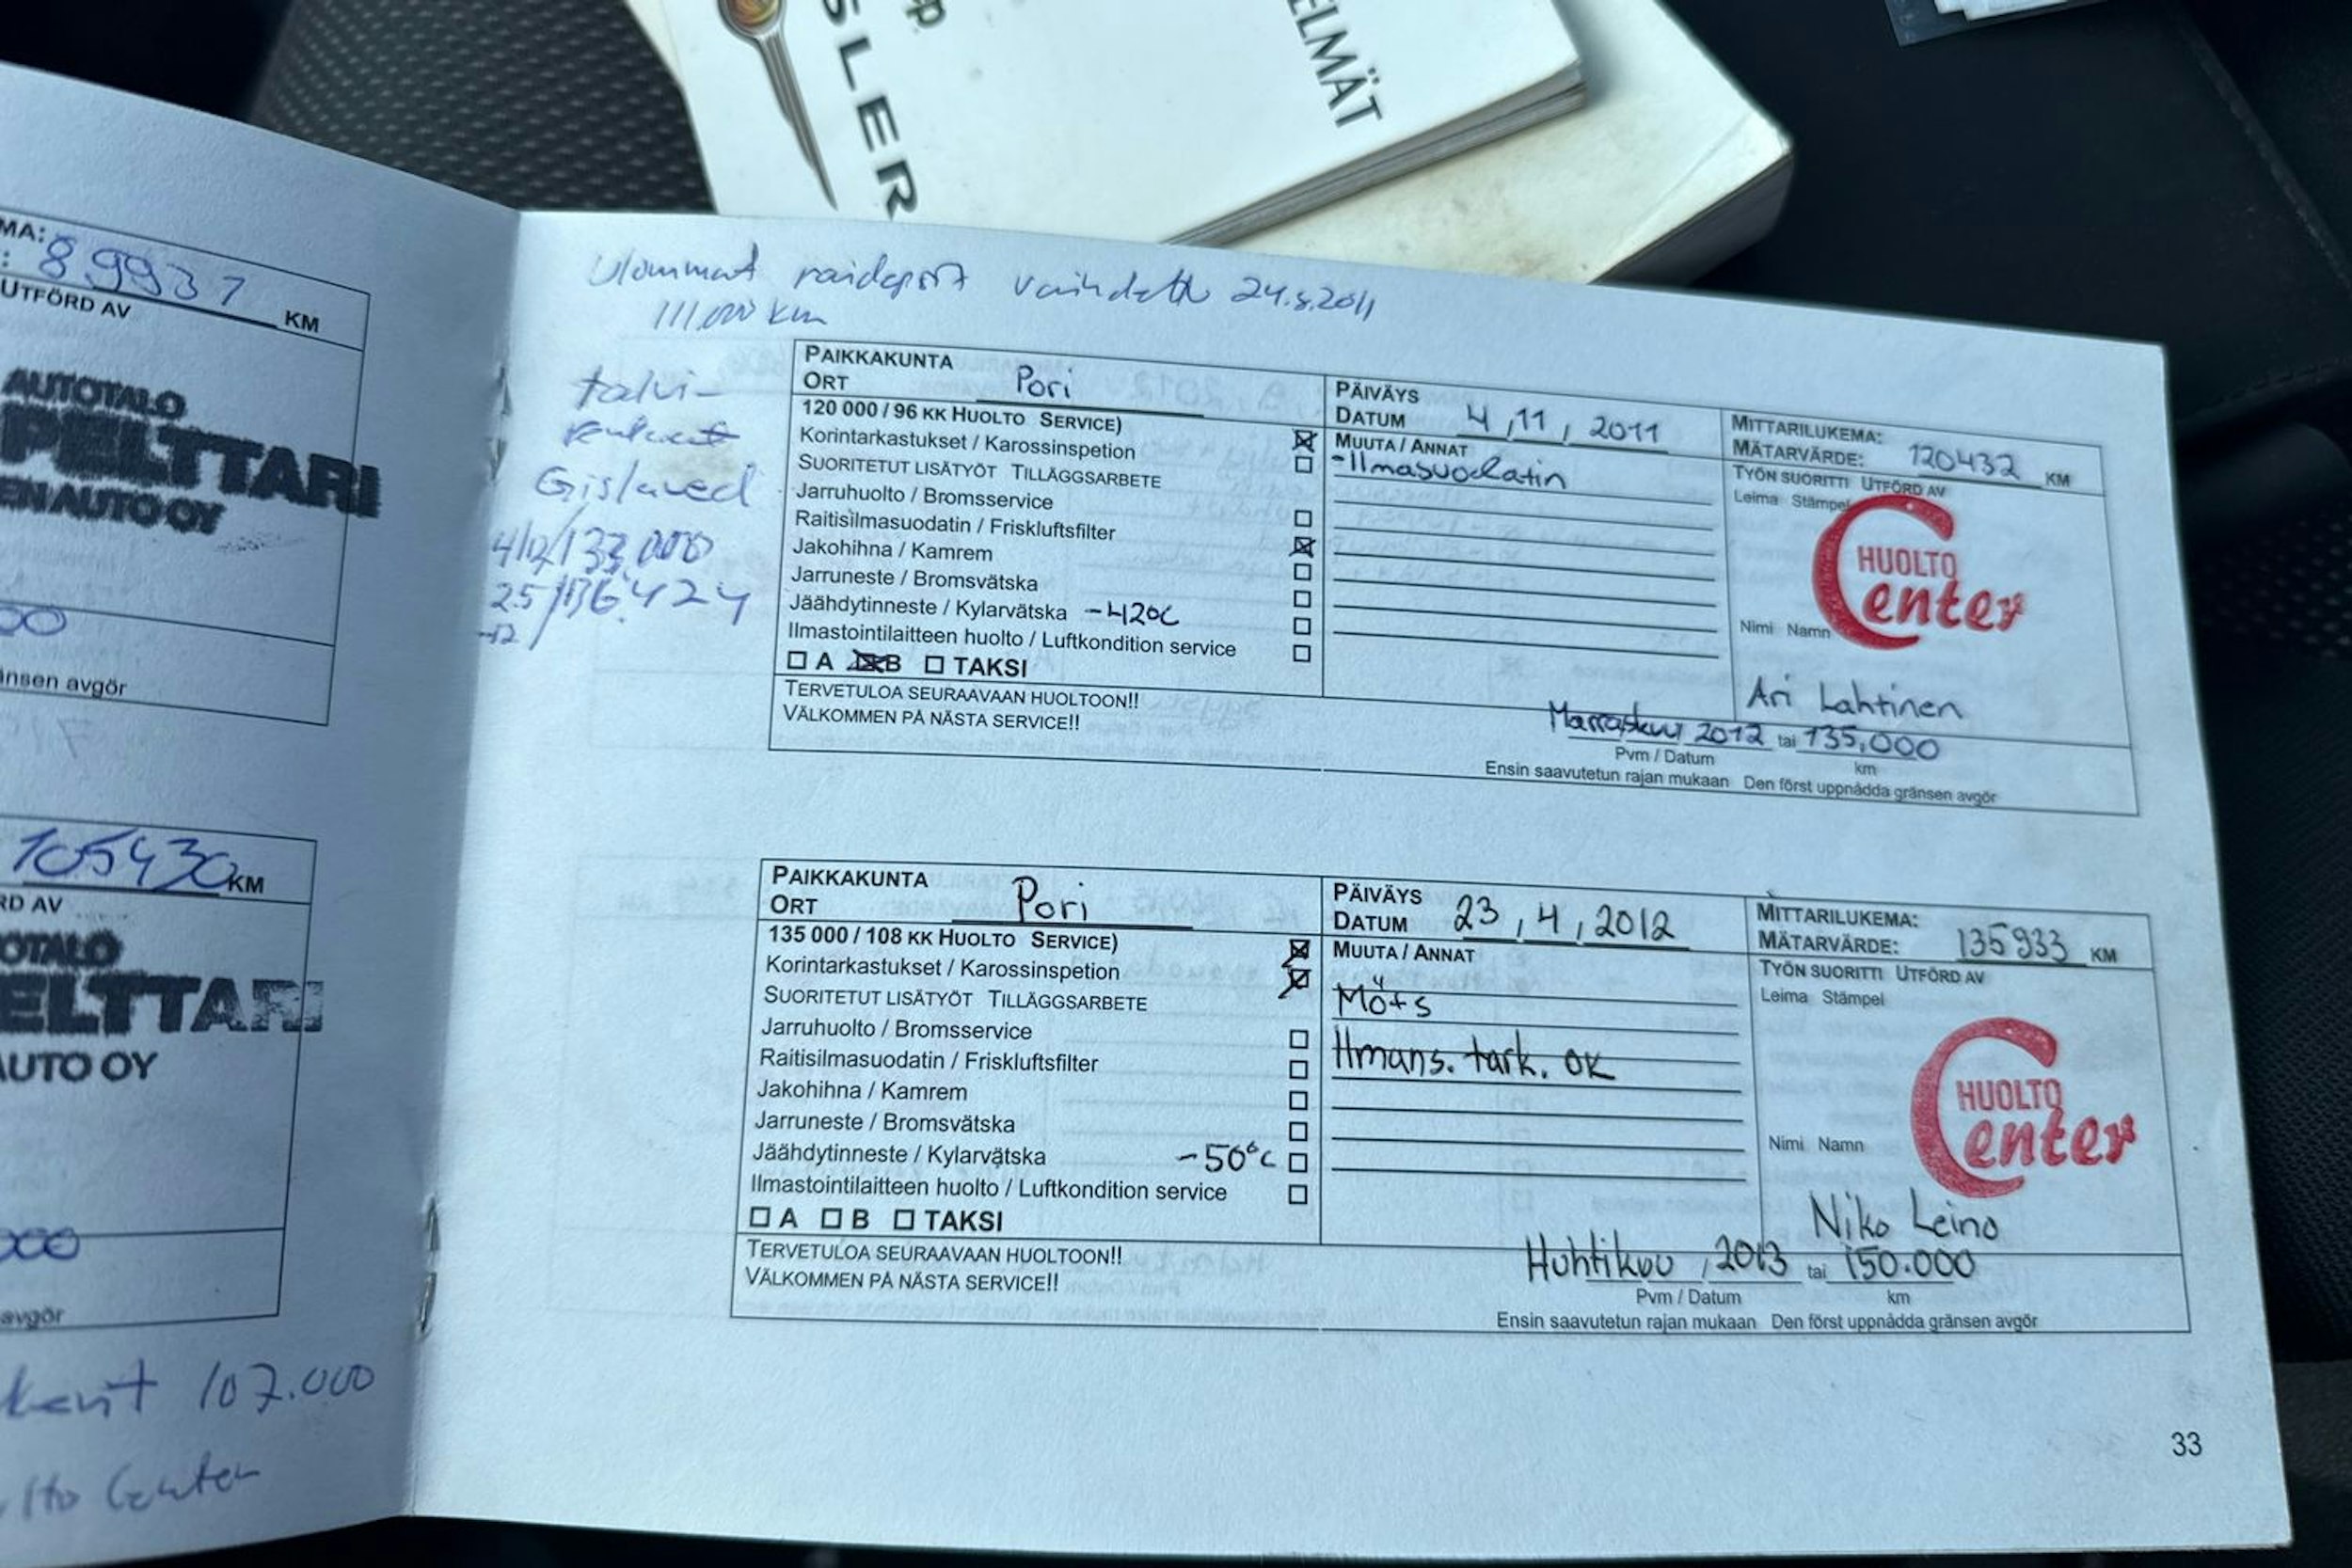 SLER
ELMÄT
MA: 89937 KM
UTFÖRD AV
AUTOTALO
PELTTARI
EN AUTO OY
änsen avgör
105430 KM
RD AV
OTALO
ELTTARI
AUTO OY
avgör
107.000
Center
vaihdettu 24.8.2011
111.000 km
talvi-
renkaat
Gislaved
4/12/133.000
25/136.424
-12
PAIKKAKUNTA
ORT Pori
120 000 / 96 KK HUOLTO SERVICE)
Korintarkastukset / Karossinspetion
SUORITETUT LISÄTYÖT TILLÄGGSARBETE
Jarruhuolto / Bromsservice
Raitisilmasuodatin / Friskluftsfilter
Jakohihna / Kamrem
Jarruneste / Bromsvätska
Jäähdytinneste / Kylarvätska -42°C
Ilmastointilaitteen huolto / Luftkondition service
A B TAKSI
TERVETULOA SEURAAVAAN HUOLTOON!!
VÄLKOMMEN PÅ NÄSTA SERVICE!!
PÄIVÄYS
DATUM 4, 11, 2011
MUUTA / ANNAT
-Ilmasuodatin
MITTARILUKEMA:
MÄTARVÄRDE: 120432 KM
TYÖN SUORITTI UTFÖRD AV
Leima Stämpel
HUOLTO
Center
Nimi Namn
Ari Lahtinen
Marraskuu 2012 tai 135.000
Pvm / Datum km
Ensin saavutetun rajan mukaan Den först uppnådda gränsen avgör
PAIKKAKUNTA
ORT Pori
135 000 / 108 KK HUOLTO SERVICE)
Korintarkastukset / Karossinspetion
SUORITETUT LISÄTYÖT TILLÄGGSARBETE
Jarruhuolto / Bromsservice
Raitisilmasuodatin / Friskluftsfilter
Jakohihna / Kamrem
Jarruneste / Bromsvätska
Jäähdytinneste / Kylarvätska -50°C
Ilmastointilaitteen huolto / Luftkondition service
A B TAKSI
TERVETULOA SEURAAVAAN HUOLTOON!!
VÄLKOMMEN PÅ NÄSTA SERVICE!!
PÄIVÄYS
DATUM 23, 4, 2012
MUUTA / ANNAT
Möts
Ilmans. tark. OK
MITTARILUKEMA:
MÄTARVÄRDE: 135933 KM
TYÖN SUORITTI UTFÖRD AV
Leima Stämpel
HUOLTO
Center
Nimi Namn
Niko Leino
Huhtikuu, 2013 tai 150.000
Pvm / Datum km
Ensin saavutetun rajan mukaan Den först uppnådda gränsen avgör
33